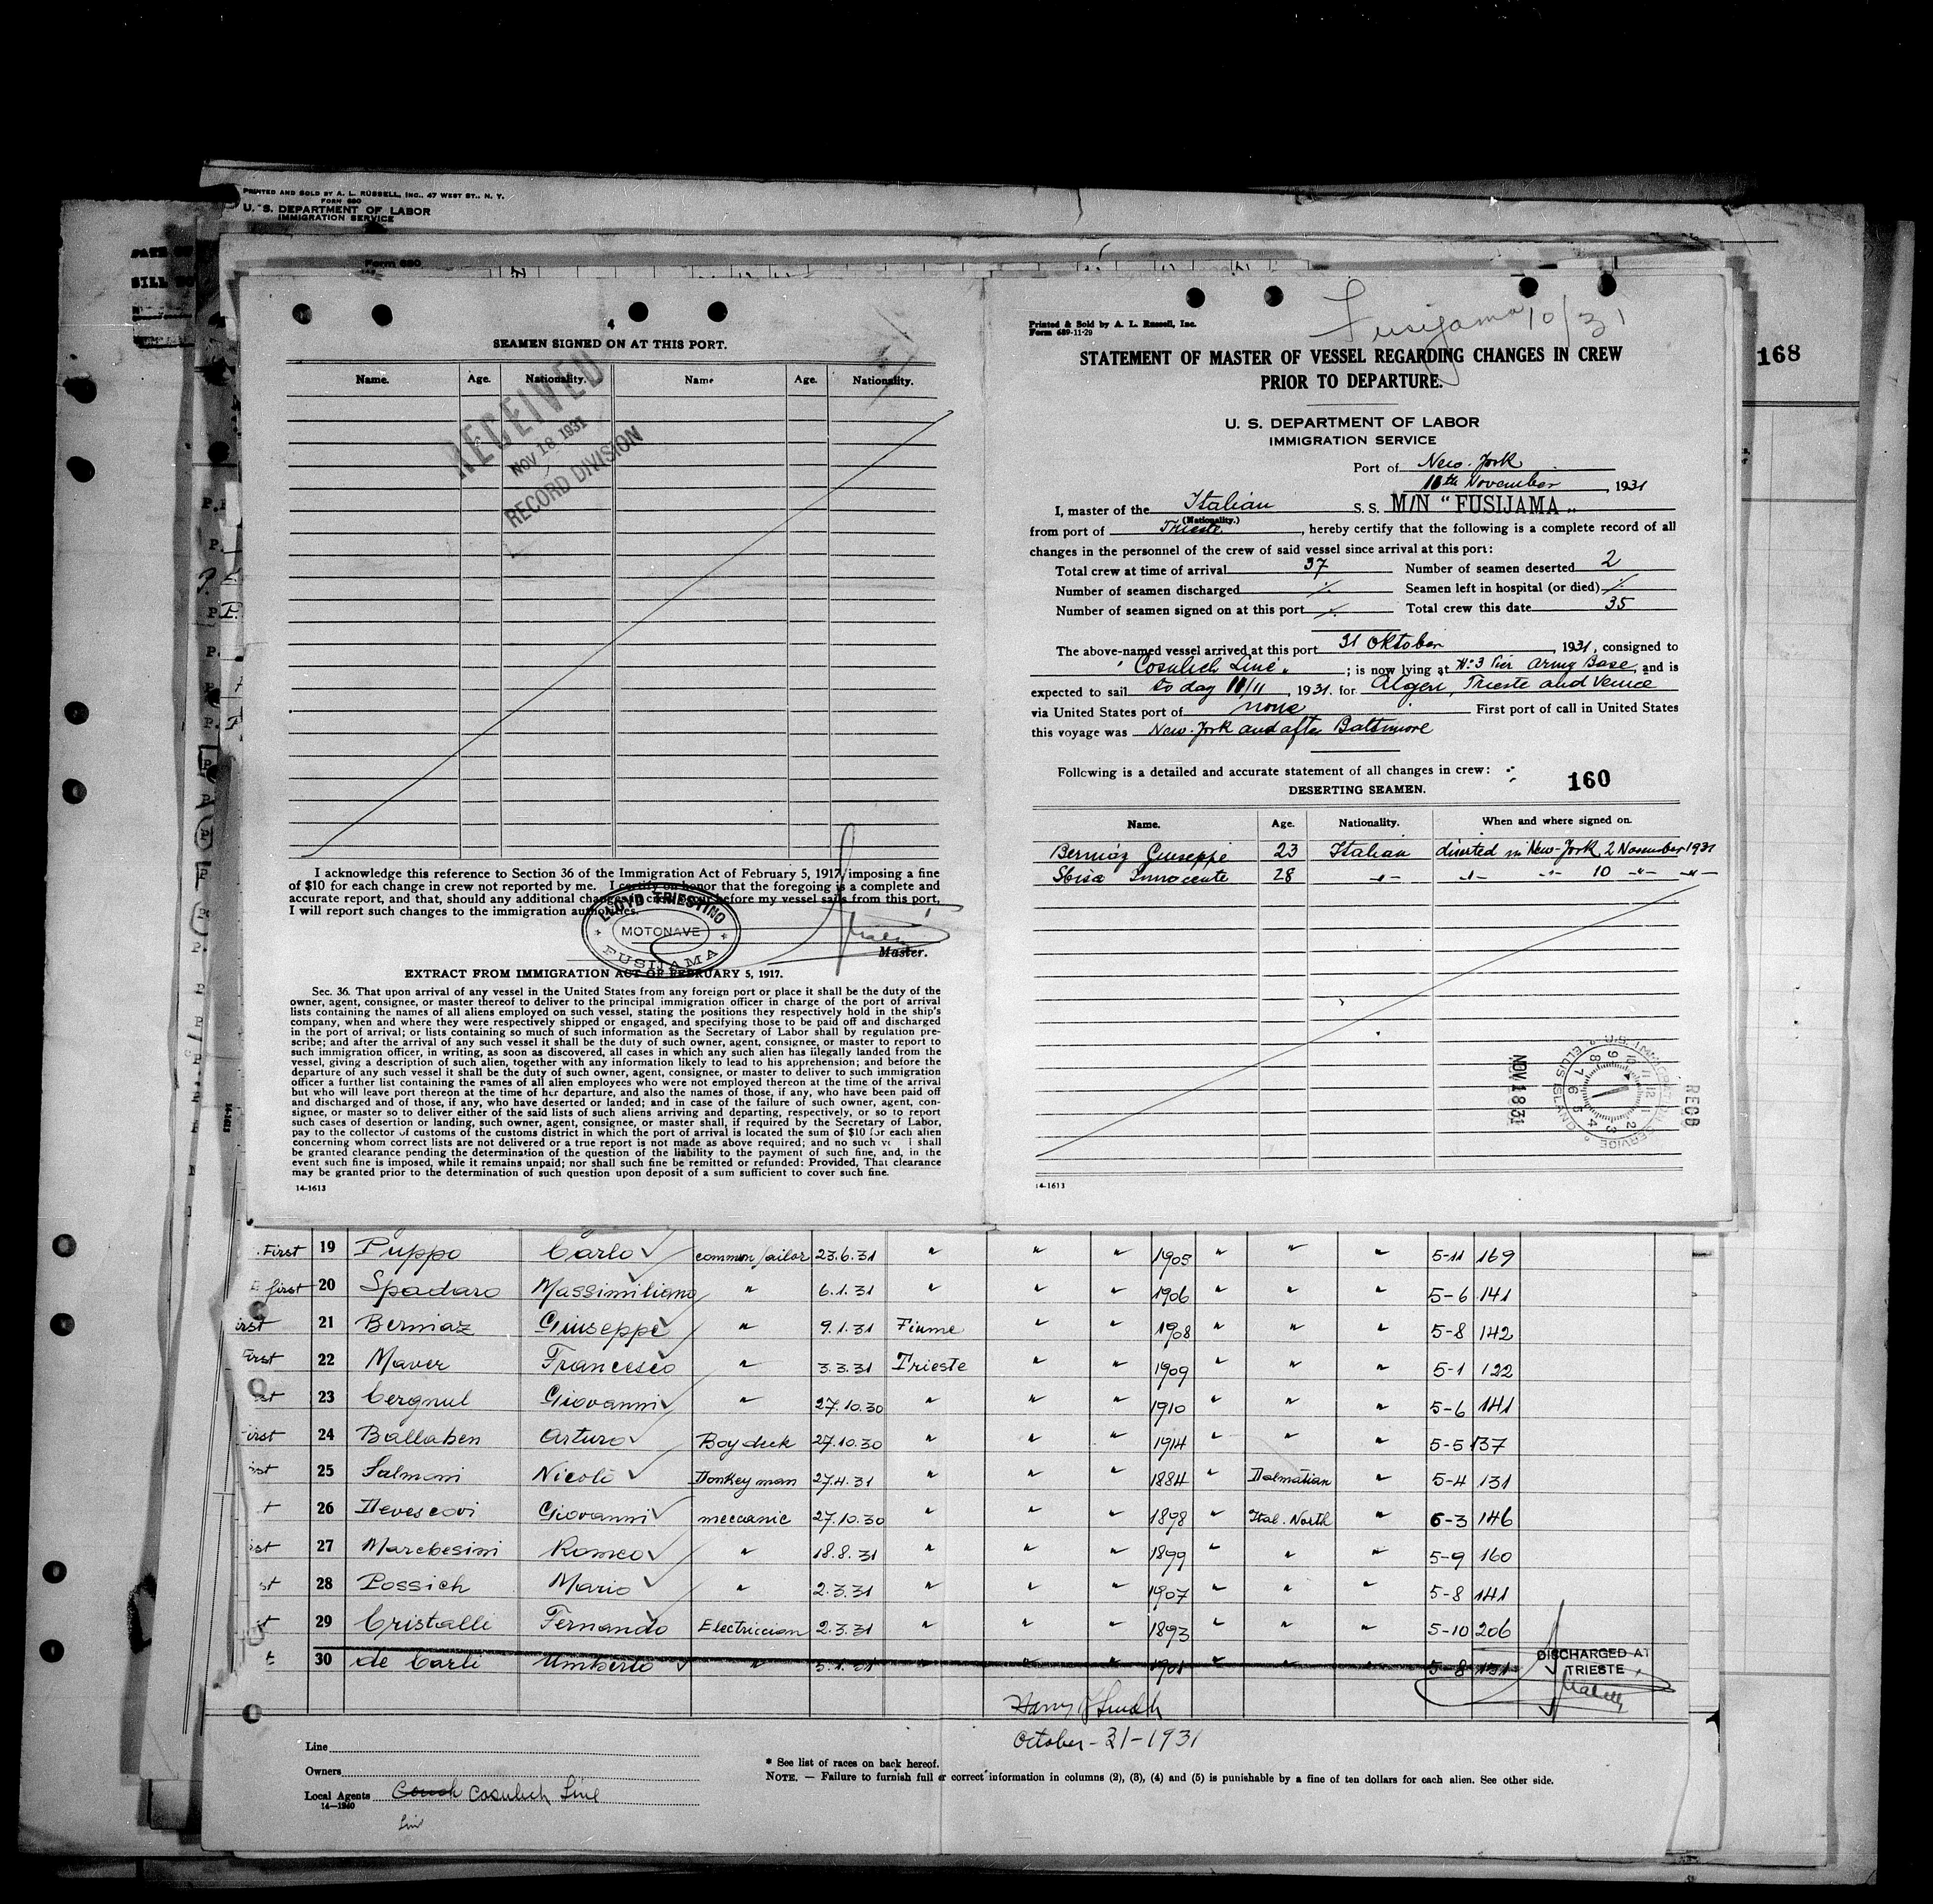 PRINTED AND SOLD BY A. L. RUSSELL, INC., 47 WEST ST., N. Y.
FORM 680
U. S. DEPARTMENT OF LABOR
IMMIGRATION SERVICE
Form 680
168
4
SEAMEN SIGNED ON AT THIS PORT.
Name. Age. Nationality. Name Age. Nationality.
RECEIVED
NOV 18 1931
RECORD DIVISION
I acknowledge this reference to Section 36 of the Immigration Act of February 5, 1917, imposing a fine
of $10 for each change in crew not reported by me. I certify on honor that the foregoing is a complete and
accurate report, and that, should any additional changes in crew occur before my vessel sails from this port,
I will report such changes to the immigration authorities.
LLOYD TRIESTINO
MOTONAVE
FUSIJAMA
Master.
EXTRACT FROM IMMIGRATION ACT OF FEBRUARY 5, 1917.
Sec. 36. That upon arrival of any vessel in the United States from any foreign port or place it shall be the duty of the
owner, agent, consignee, or master thereof to deliver to the principal immigration officer in charge of the port of arrival
lists containing the names of all aliens employed on such vessel, stating the positions they respectively hold in the ship's
company, when and where they were respectively shipped or engaged, and specifying those to be paid off and discharged
in the port of arrival; or lists containing so much of such information as the Secretary of Labor shall by regulation pre-
scribe; and after the arrival of any such vessel it shall be the duty of such owner, agent, consignee, or master to report to
such immigration officer, in writing, as soon as discovered, all cases in which any such alien has illegally landed from the
vessel, giving a description of such alien, together with any information likely to lead to his apprehension; and before the
departure of any such vessel it shall be the duty of such owner, agent, consignee, or master to deliver to such immigration
officer a further list containing the names of all alien employees who were not employed thereon at the time of the arrival
but who will leave port thereon at the time of her departure, and also the names of those, if any, who have been paid off
and discharged and of those, if any, who have deserted or landed; and in case of the failure of such owner, agent, con-
signee, or master so to deliver either of the said lists of such aliens arriving and departing, respectively, or so to report
such cases of desertion or landing, such owner, agent, consignee, or master shall, if required by the Secretary of Labor,
pay to the collector of customs of the customs district in which the port of arrival is located the sum of $10 for each alien
concerning whom correct lists are not delivered or a true report is not made as above required; and no such ve l shall
be granted clearance pending the determination of the question of the liability to the payment of such fine, and, in the
event such fine is imposed, while it remains unpaid; nor shall such fine be remitted or refunded: Provided, That clearance
may be granted prior to the determination of such question upon deposit of a sum sufficient to cover such fine.
14-1613
Fusijama 10/31
Printed & Sold by A. L. Russell, Inc.
Form 689-11-29
STATEMENT OF MASTER OF VESSEL REGARDING CHANGES IN CREW
PRIOR TO DEPARTURE.
U. S. DEPARTMENT OF LABOR
IMMIGRATION SERVICE
Port of New-York
November, 1931
I, master of the Italian S. S. M/N "FUSIJAMA"
(Nationality.)
from port of Trieste, hereby certify that the following is a complete record of all
changes in the personnel of the crew of said vessel since arrival at this port:
Total crew at time of arrival 37 Number of seamen deserted 2
Number of seamen discharged Seamen left in hospital (or died)
Number of seamen signed on at this port Total crew this date 35
The above-named vessel arrived at this port 31 Oktober, 1931, consigned to
"Cosulich Line"; is now lying at No 3 Pier Army Base, and is
expected to sail to day 11/11, 1931. for Algeri, Trieste and Venice
via United States port of none First port of call in United States
this voyage was New-York and after Baltimore
Following is a detailed and accurate statement of all changes in crew:
160
DESERTING SEAMEN.
Name. Age. Nationality. When and where signed on.
Berniaz Giuseppe 23 Italian New-York 2 November 1931
Sbisà Innocente 28 -"- -"- -"- 10 -"- -"-
U.S. IMMIGRATION SERVICE ELLIS ISLAND
NOV 18 31
REC'D
14-1613
First 19 Puppo Carlo common sailor 23.6.31 " " " 1905 " " " 5-11 169
first 20 Spadaro Massimiliano " 6.1.31 " " " 1906 " " " 5-6 141
irst 21 Berniaz Giuseppe " 9.1.31 Fiume " " 1908 " " " 5-8 142
First 22 Maver Francesco " 3.3.31 Trieste " " 1909 " " " 5-1 122
st 23 Cergnul Giovanni " 27.10.30 " " " 1910 " " " 5-6 141
irst 24 Ballaben Arturo Boy deck 27.10.30 " " " 1914 " " " 5-5 137
irst 25 Salmoni Nicolò Donkey man 27.4.31 " " " 1884 " Dalmatian " 5-4 131
t 26 Devescovi Giovanni meccanic 27.10.30 " " " 1898 " Ital. North " 6-3 146
st 27 Marchesini Romeo " 18.8.31 " " " 1899 " " " 5-9 160
st 28 Possich Mario " 2.3.31 " " " 1907 " " " 5-8 141
st 29 Cristalli Fernando Electriccian 2.3.31 " " " 1893 " " " 5-10 206
t 30 de Carli Umberto " 5.1.31 " " " 1901 " " " 5-8 151
DISCHARGED AT
TRIESTE
October-31-1931
Line
Owners
Local Agents Cosulich Line
14-1240
* See list of races on back hereof.
NOTE. — Failure to furnish full or correct information in columns (2), (3), (4) and (5) is punishable by a fine of ten dollars for each alien. See other side.